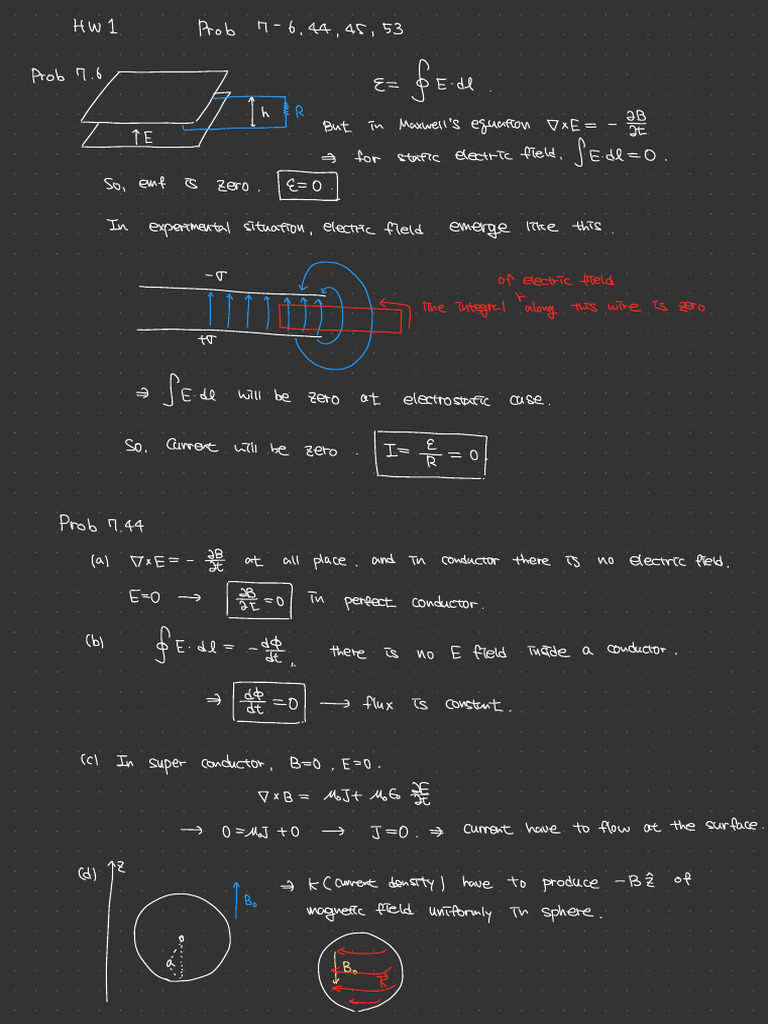 HW1 Prob 7-6, 44, 45, 53
Prob 7.6
ε = ∮ E·dl .
h R
↑E
But in Maxwell's equation ∇×E = - ∂B/∂t
⇒ for static electric field, ∫E·dl = 0 .
So, emf is zero. ε=0
In experimental situation, electric field emerge like this.
-σ
of electric field
line integral along this wire is zero.
+σ
⇒ ∫E·dl will be zero at electrostatic case.
So, Current will be zero . I = ε/R = 0
Prob 7.44
(a) ∇×E = - ∂B/∂t at all place. and in conductor there is no electric field.
E=0 → ∂B/∂t = 0 in perfect conductor.
(b) ∮E·dl = - dΦ/dt , there is no E field inside a conductor.
⇒ dΦ/dt = 0 → flux is constant.
(c) In super conductor, B=0, E=0.
∇×B = μ₀J + μ₀ε₀ ∂E/∂t
→ 0 = μ₀J + 0 → J=0. ⇒ current have to flow at the surface.
(d) z
B₀
⇒ K (current density) have to produce -B ẑ of
magnetic field uniformly in sphere.
a
B₀